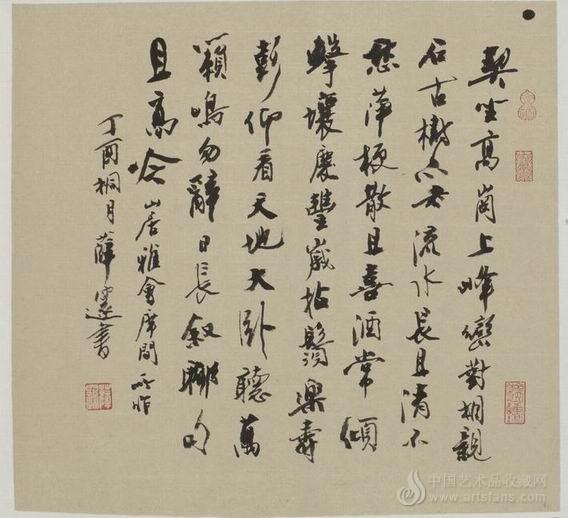 契坐高崗上峰巒對相親
石古樹老流水長且清不
愁萍梗散且喜酒常傾
擊壤慶豐歲拈鬚樂壽
彭仰看天地大卧聽萬
籟鳴勿辭日長敘聊
且高吟山居雅會席間所作
丁酉桐月薛書
中国艺术品收藏网
www.artsfans.com